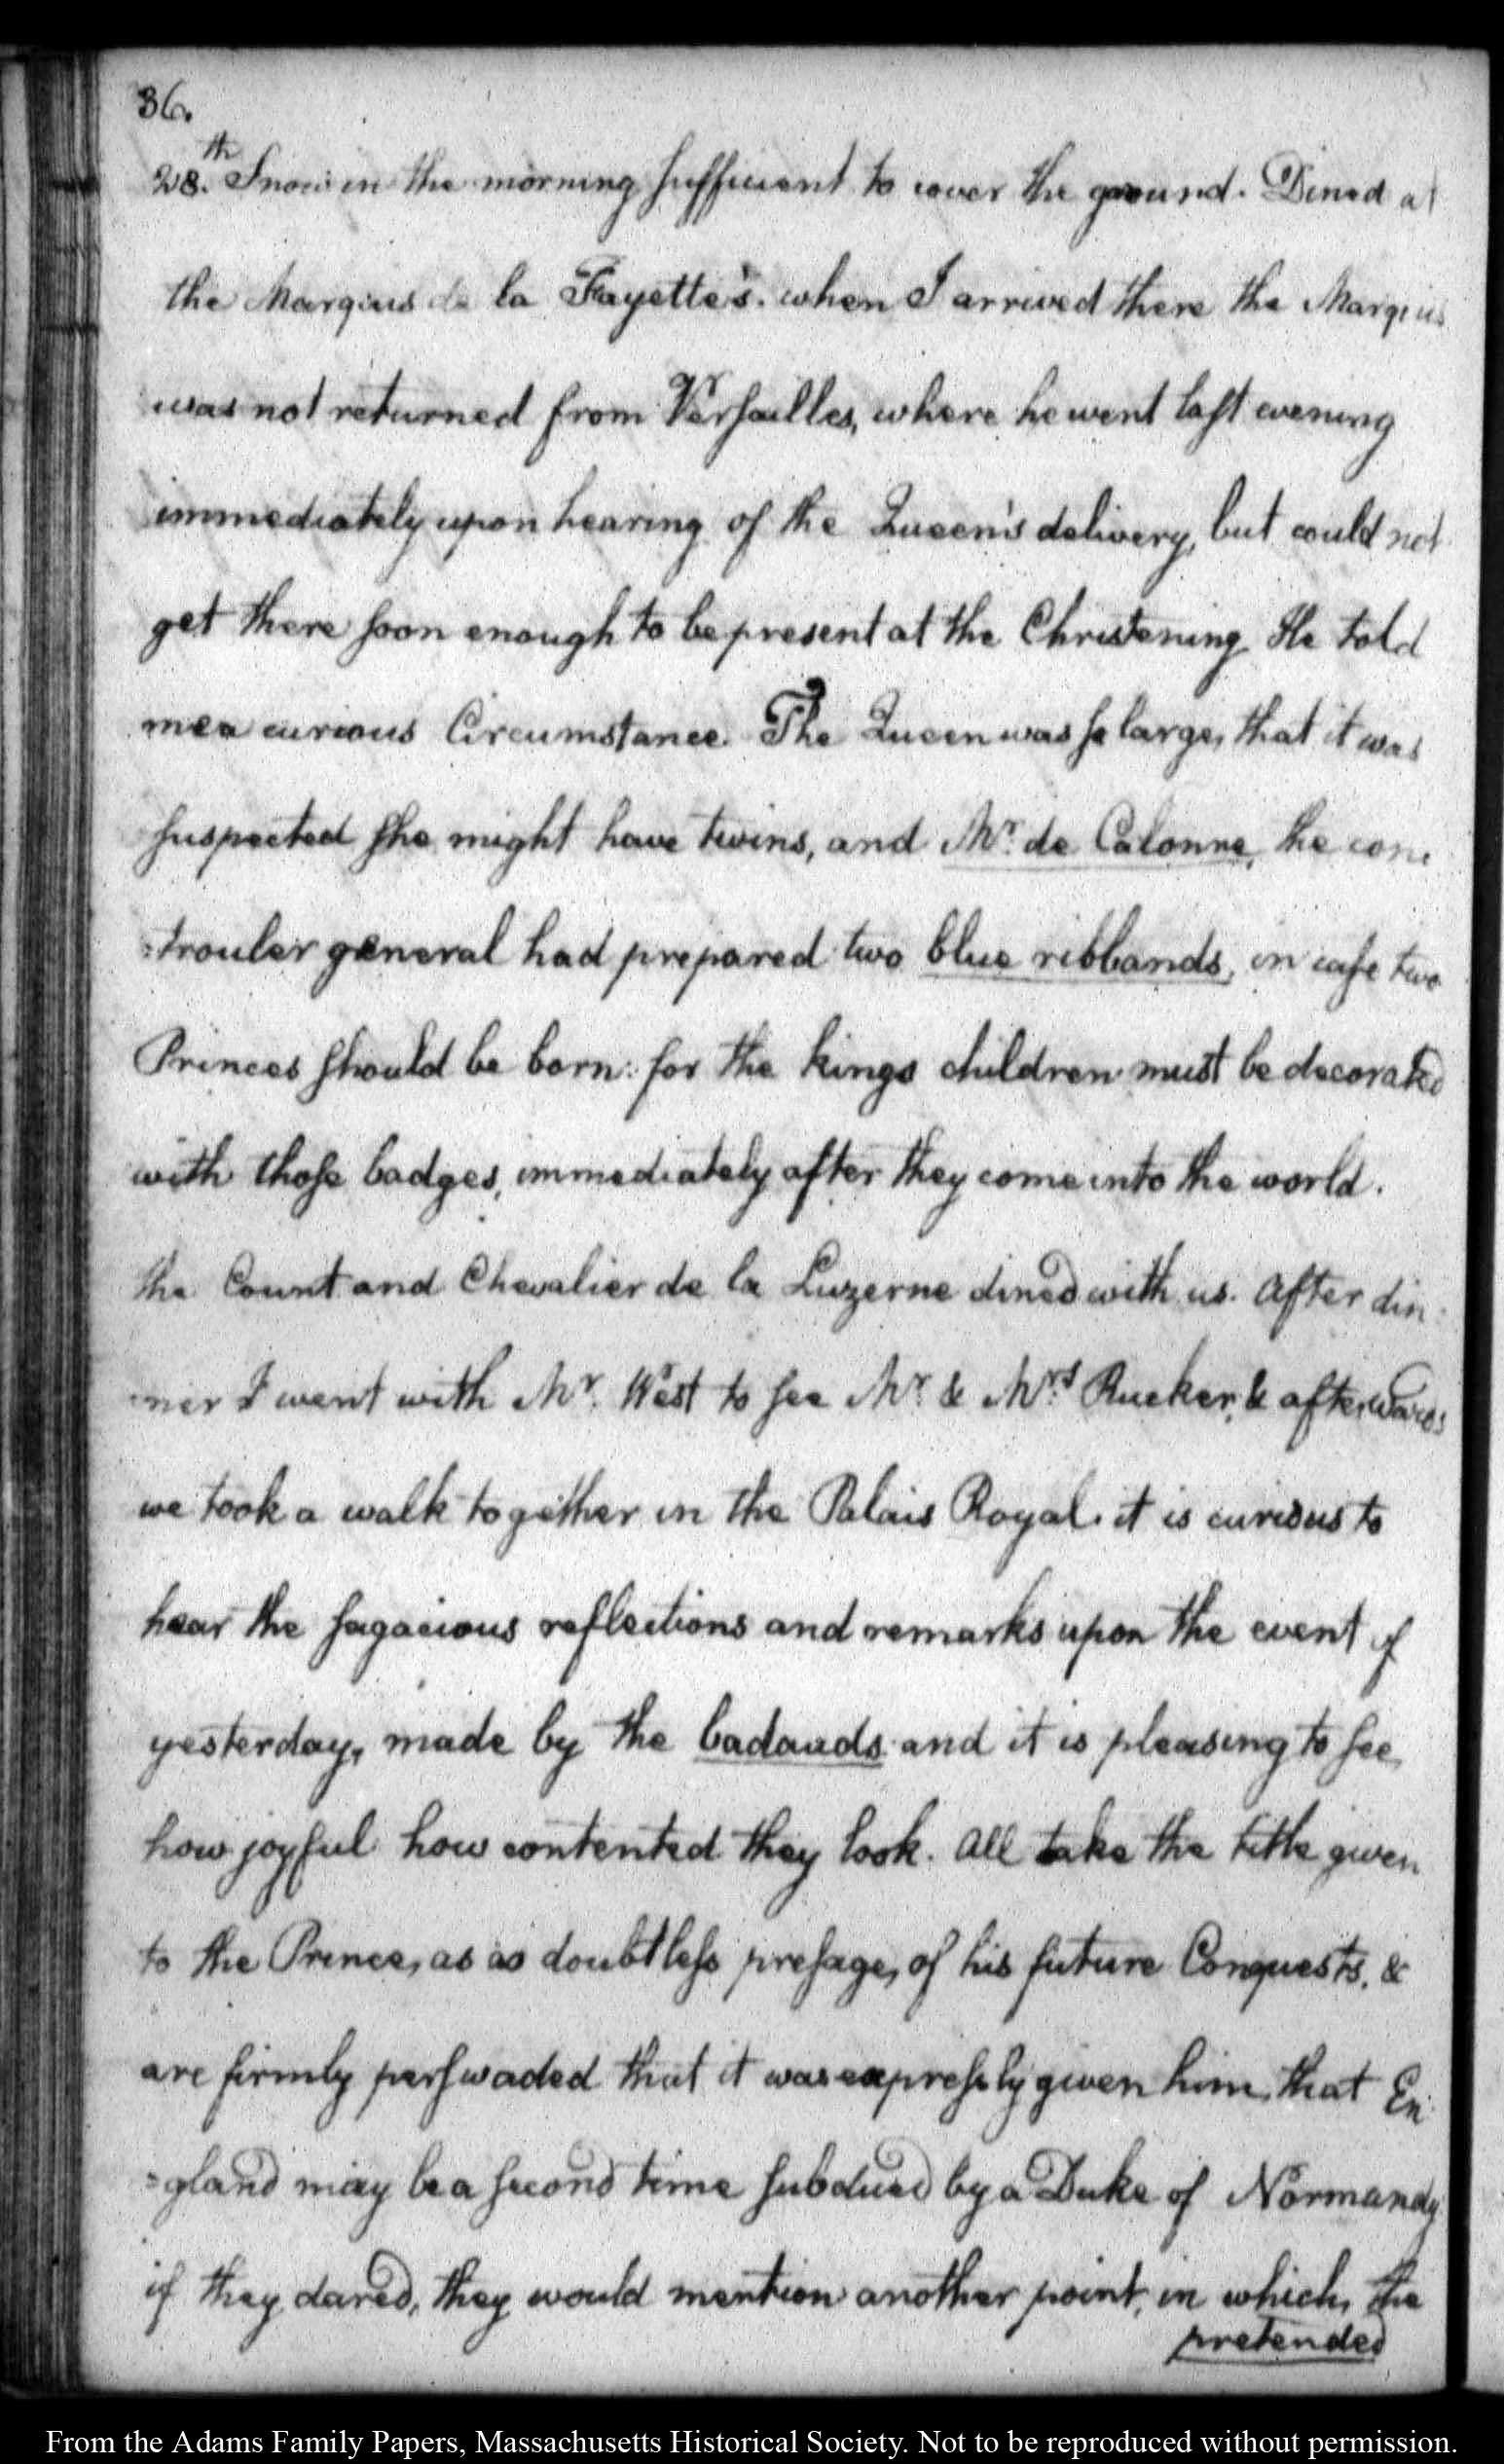 36.
28.th Snow in the morning sufficient to cover the ground. Dined at
the Marquis de la Fayette's. when I arrived there the Marquis
was not returned from Versailles, where he went last evening
immediately upon hearing of the Queen's delivery, but could not
get there soon enough to be present at the Christening. He told
me a curious Circumstance. The Queen was so large, that it was
suspected she might have twins, and Mr. de Calonne, the con
:trouler general had prepared two blue ribbands, in case two
Princes should be born: for the kings children must be decorated
with those badges, immediately after they come into the world.
the Count and Chevalier de la Luzerne dined with us. After din
:ner I went with Mr. West to see Mr. & Mrs. Rucker, & afterwards
we took a walk together in the Palais Royal. it is curious to
hear the sagacious reflections and remarks upon the event of
yesterday, made by the badauds and it is pleasing to see,
how joyful how contented they look. All take the title given
to the Prince, as a doubtless presage, of his future Conquests, &
are firmly perswaded that it was expressly given him, that En
=gland may be a second time subdued by a Duke of Normandy
if they dared, they would mention another point, in which, the
pretended
From the Adams Family Papers, Massachusetts Historical Society. Not to be reproduced without permission.